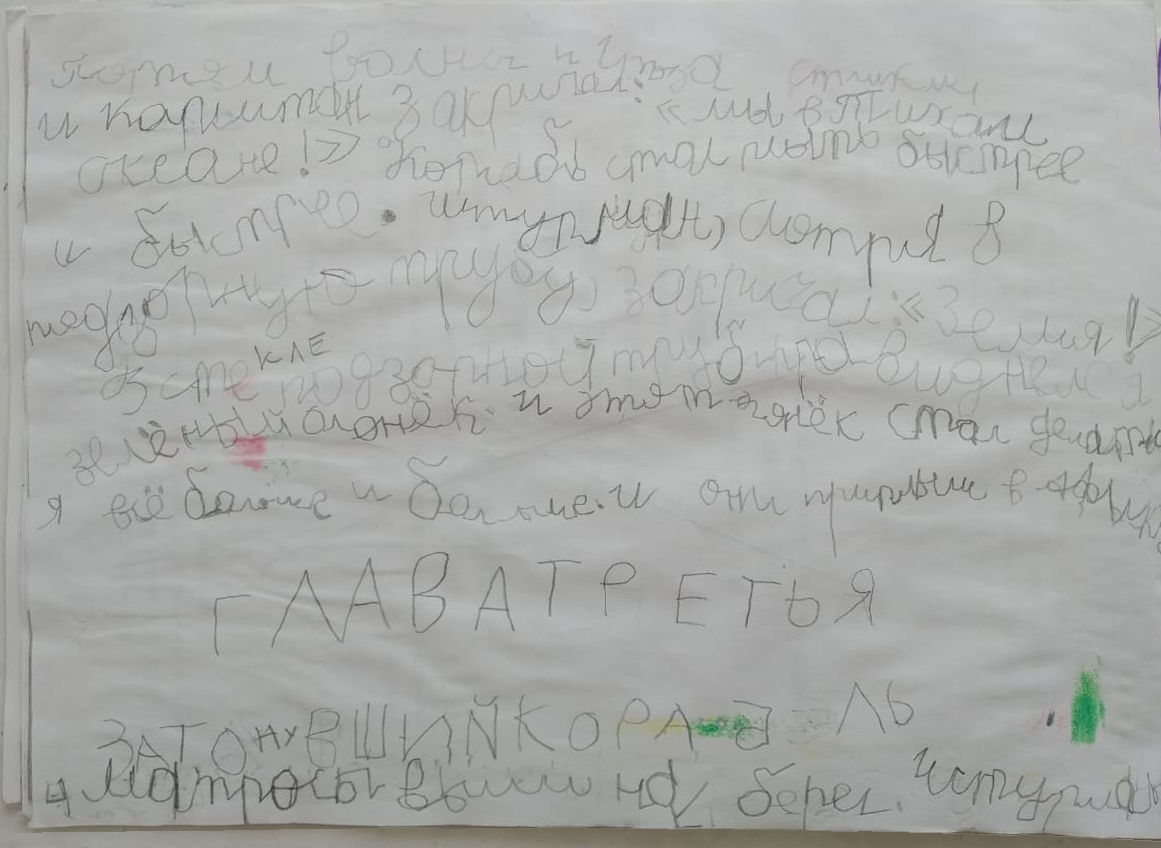 Потом волны чуда стихли,
и капитан закричал: «мы в Тихом
океане!» Корабь стал плыть быстрее
и быстрее. штурман, смотря в
подзорную трубу, закричал: «Земля!»
В стекле подзорной трубы виднелся
зелёный огонёк. и этот огянёк стал делатьс
я всё больше и больше. и они приплыли в Африку
ГЛАВА ТРЕТЬЯ
ЗАТОНУВШИЙ КОРАБЛЬ
Матросы вышли на берег. Штурман